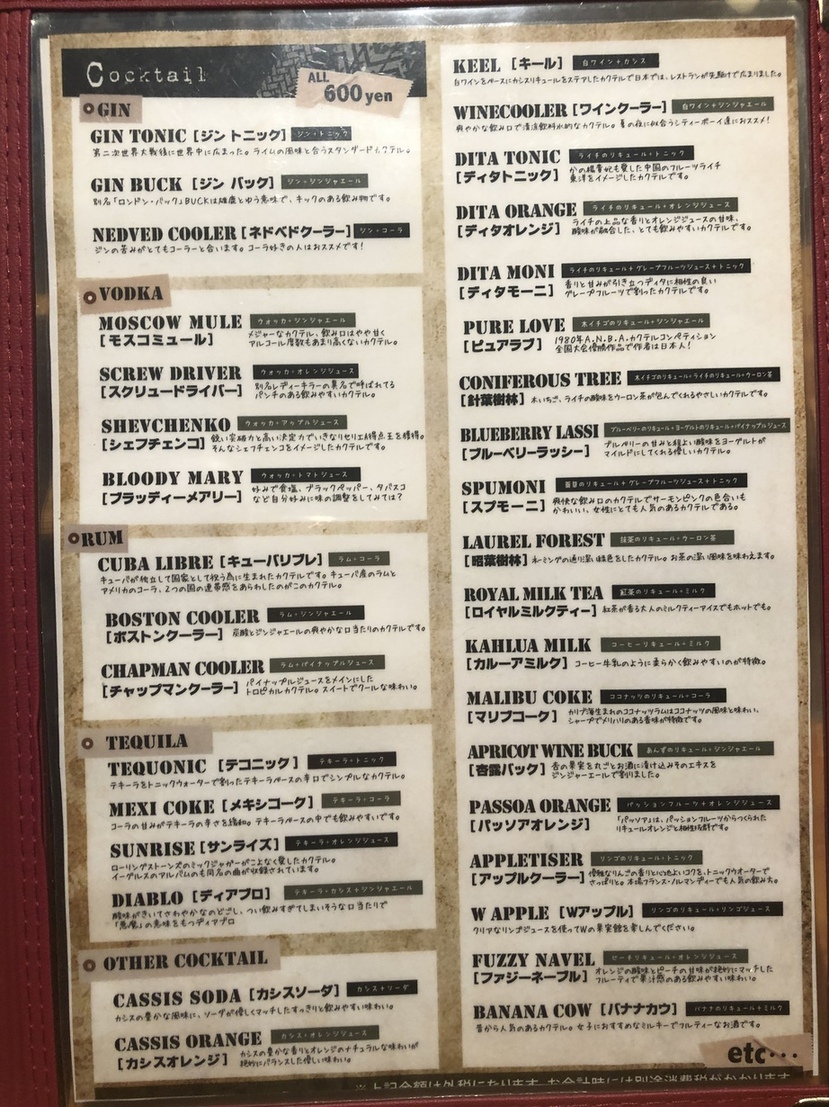 Cocktail
ALL
600yen
GIN
GIN TONIC [ジントニック] ジン+トニック
第二次世界大戦後に世界中に広まった。ライムの風味と合うスタンダードカクテル。
GIN BUCK [ジン バック] ジン+ジンジャエール
別名「ロンドン・バック」BUCKは雄鹿とゆう意味で、キックのある飲み物です。
NEDVED COOLER [ネドベドクーラー] ジン+コーラ
ジンの苦みがとてもコーラーと合います。コーラ好きの人はおススメです!
VODKA
MOSCOW MULE ウォッカ+ジンジャエール
[モスコミュール] メジャーなカクテル、飲み口はやや甘く
アルコール度数もあまり高くないカクテル。
SCREW DRIVER ウォッカ+オレンジジュース
[スクリュードライバー] 別名レディーキラーの異名で呼ばれてる
パンチのある飲みやすいカクテル。
SHEVCHENKO ウォッカ+アップルジュース
[シェフチェンコ] 鋭い突破力と高い決定力でいきなりセリエA得点王を獲得。
そんなシェフチェンコをイメージしたカクテルです。
BLOODY MARY ウォッカ+トマトジュース
[ブラッディーメアリー] 好みで食塩、ブラックペッパー、タバスコ
など自分好みに味の調整をしてみては?
RUM
CUBA LIBRE [キューバリブレ] ラム+コーラ
キューバが独立して国家として祝う為に生まれたカクテルです。キューバ産のラムと
アメリカのコーラ、2つの国の連帯感をあらわしたのがこのカクテル。
BOSTON COOLER ラム+ジンジャエール
[ボストンクーラー] 炭酸とジンジャエールの爽やかな口当たりのカクテルです。
CHAPMAN COOLER ラム+パイナップルジュース
[チャップマンクーラー] パイナップルジュースをメインにした
トロピカルカクテル。スイートでクールな味わい。
TEQUILA
TEQUONIC [テコニック] テキーラ+トニック
テキーラをトニックウォーターで割ったテキーラベースの辛口でシンプルなカクテル。
MEXI COKE [メキシコーク] テキーラ+コーラ
コーラの甘みがテキーラの辛さを緩和。テキーラベースの中でも飲みやすいです。
SUNRISE [サンライズ] テキーラ+オレンジジュース
ローリングストーンズのミックジャガーがこよなく愛したカクテル。
イーグルスのアルバムのも同名の曲が収録されています。
DIABLO [ディアブロ] テキーラ+カシス+ジンジャエール
酸味がきいてさわやかなのどごし、つい飲みすぎてしまいそうな口当たりで
「悪魔」の意味をもつディアブロ
OTHER COCKTAIL
CASSIS SODA [カシスソーダ] カシス+ソーダ
カシスの豊かな風味に、ソーダが優しくマッチしたすっきりと飲みやすい味わい。
CASSIS ORANGE カシス+オレンジジュース
[カシスオレンジ] カシスの豊かな香りとオレンジのナチュラルな味わいが
絶妙にバランスした優しい味わい。
KEEL [キール] 白ワイン+カシス
白ワインをベースにカシスリキュールをステアしたカクテルで日本では、レストランが先駆けで広まりました。
WINECOOLER [ワインクーラー] 白ワイン+ジンジャエール
爽やかな飲み口で清涼飲料水的なカクテル。夏の夜に似合うシティーボーイ達におススメ!
DITA TONIC ライチのリキュール+トニック
[ディタトニック] かの楊貴妃も愛した中国のフルーツライチ
東洋をイメージしたカクテルです。
DITA ORANGE ライチのリキュール+オレンジジュース
[ディタオレンジ] ライチの上品な香りとオレンジジュースの甘味、
酸味が融合した、とても飲みやすいカクテルです。
DITA MONI ライチのリキュール+グレープフルーツジュース+トニック
[ディタモーニ] 香りと甘みが引き立つディタに相性の良い
グレープフルーツで割ったカクテルです。
PURE LOVE 木イチゴのリキュール+ジンジャエール
[ピュアラブ] 1980年A.N.B.A.カクテルコンペティション
全国大会優勝作品で作者は日本人!
CONIFEROUS TREE 木イチゴのリキュール+ライチのリキュール+ウーロン茶
[針葉樹林] 木いちご、ライチの酸味をウーロン茶が包んでくれるやさしいカクテルです。
BLUEBERRY LASSI ブルーベリーのリキュール+ヨーグルトのリキュール+パイナップルジュース
[ブルーベリーラッシー] ブルベリーの甘みと程よい酸味をヨーグルトが
マイルドにしてくれる優しいカクテル。
SPUMONI のリキュール+グレープフルーツジュース+トニック
[スプモーニ] 爽快な飲み口のカクテルでサーモンピンクの色合いも
かわいい、女性にとても人気のあるカクテルである。
LAUREL FOREST 抹茶のリキュール+ウーロン茶
[昭葉樹林] ネーミングの通り深い緑色をしたカクテル。お茶の深い風味を味わえます。
ROYAL MILK TEA 紅茶のリキュール+ミルク
[ロイヤルミルクティー] 紅茶が香る大人のミルクティーアイスでもホットでも。
KAHLUA MILK コーヒーリキュール+ミルク
[カルーアミルク] コーヒー牛乳のように柔らかく飲みやすいのが特徴。
MALIBU COKE ココナッツのリキュール+コーラ
[マリブコーク] カリブ海生まれのココナッツラムはココナッツの風味と味わい、
シャープでメリハリのある香味が特徴です。
APRICOT WINE BUCK あんずのリキュール+ジンジャエール
[杏露バック] 杏の果実を丸ごとお酒に漬け込みそのエキスを
ジンジャーエールで割りました。
PASSOA ORANGE パッションフルーツ+オレンジジュース
[パッソアオレンジ] 「パッソア」は、パッションフルーツからつくられた
リキュールオレンジと相性抜群です。
APPLETISER リンゴのリキュール+トニック
[アップルクーラー] 優雅なりんごの香りと心地よいコクを、トニックウォーターで
さっぱりと。本場フランス・ノルマンディーでも人気の飲み方。
W APPLE [Wアップル] リンゴのリキュール+リンゴジュース
クリアなリンゴジュースを使ってWの果実館を楽しんでください。
FUZZY NAVEL ピーチリキュール+オレンジジュース
[ファジーネーブル] オレンジの酸味とピーチの甘味が絶妙にマッチした
フルーティで果汁感のある味わい。
BANANA COW [バナナカウ] バナナのリキュール+ミルク
昔から人気のあるカクテル。女子におすすめなミルキーでフルティーなお酒です。
etc・・・
※上記金額は外税になります。お会計時には別途消費税がかかります。